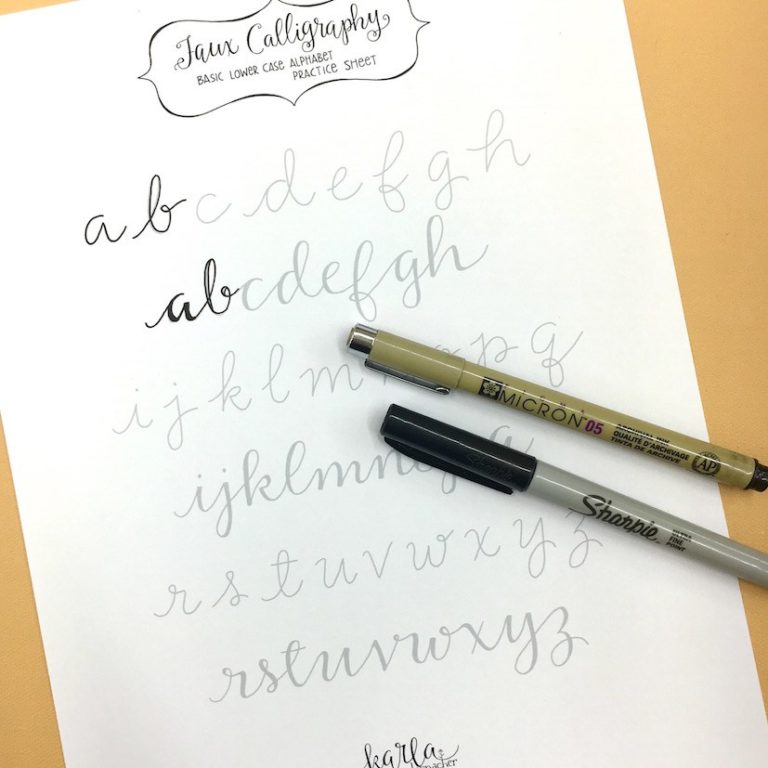 Faux Calligraphy
BASIC LOWER CASE ALPHABET
PRACTICE SHEET
a b c d e f g h
abcdefgh
i j k l m n o p q
MICRON 05
ARCHIVAL INK
QUALITÉ D'ARCHIVAGE
TINTA DE ARCHIVE
AP
ijklmnopq
Sharpie
FINE
POINT
r s t u v w x y z
rstuvwxyz
karla